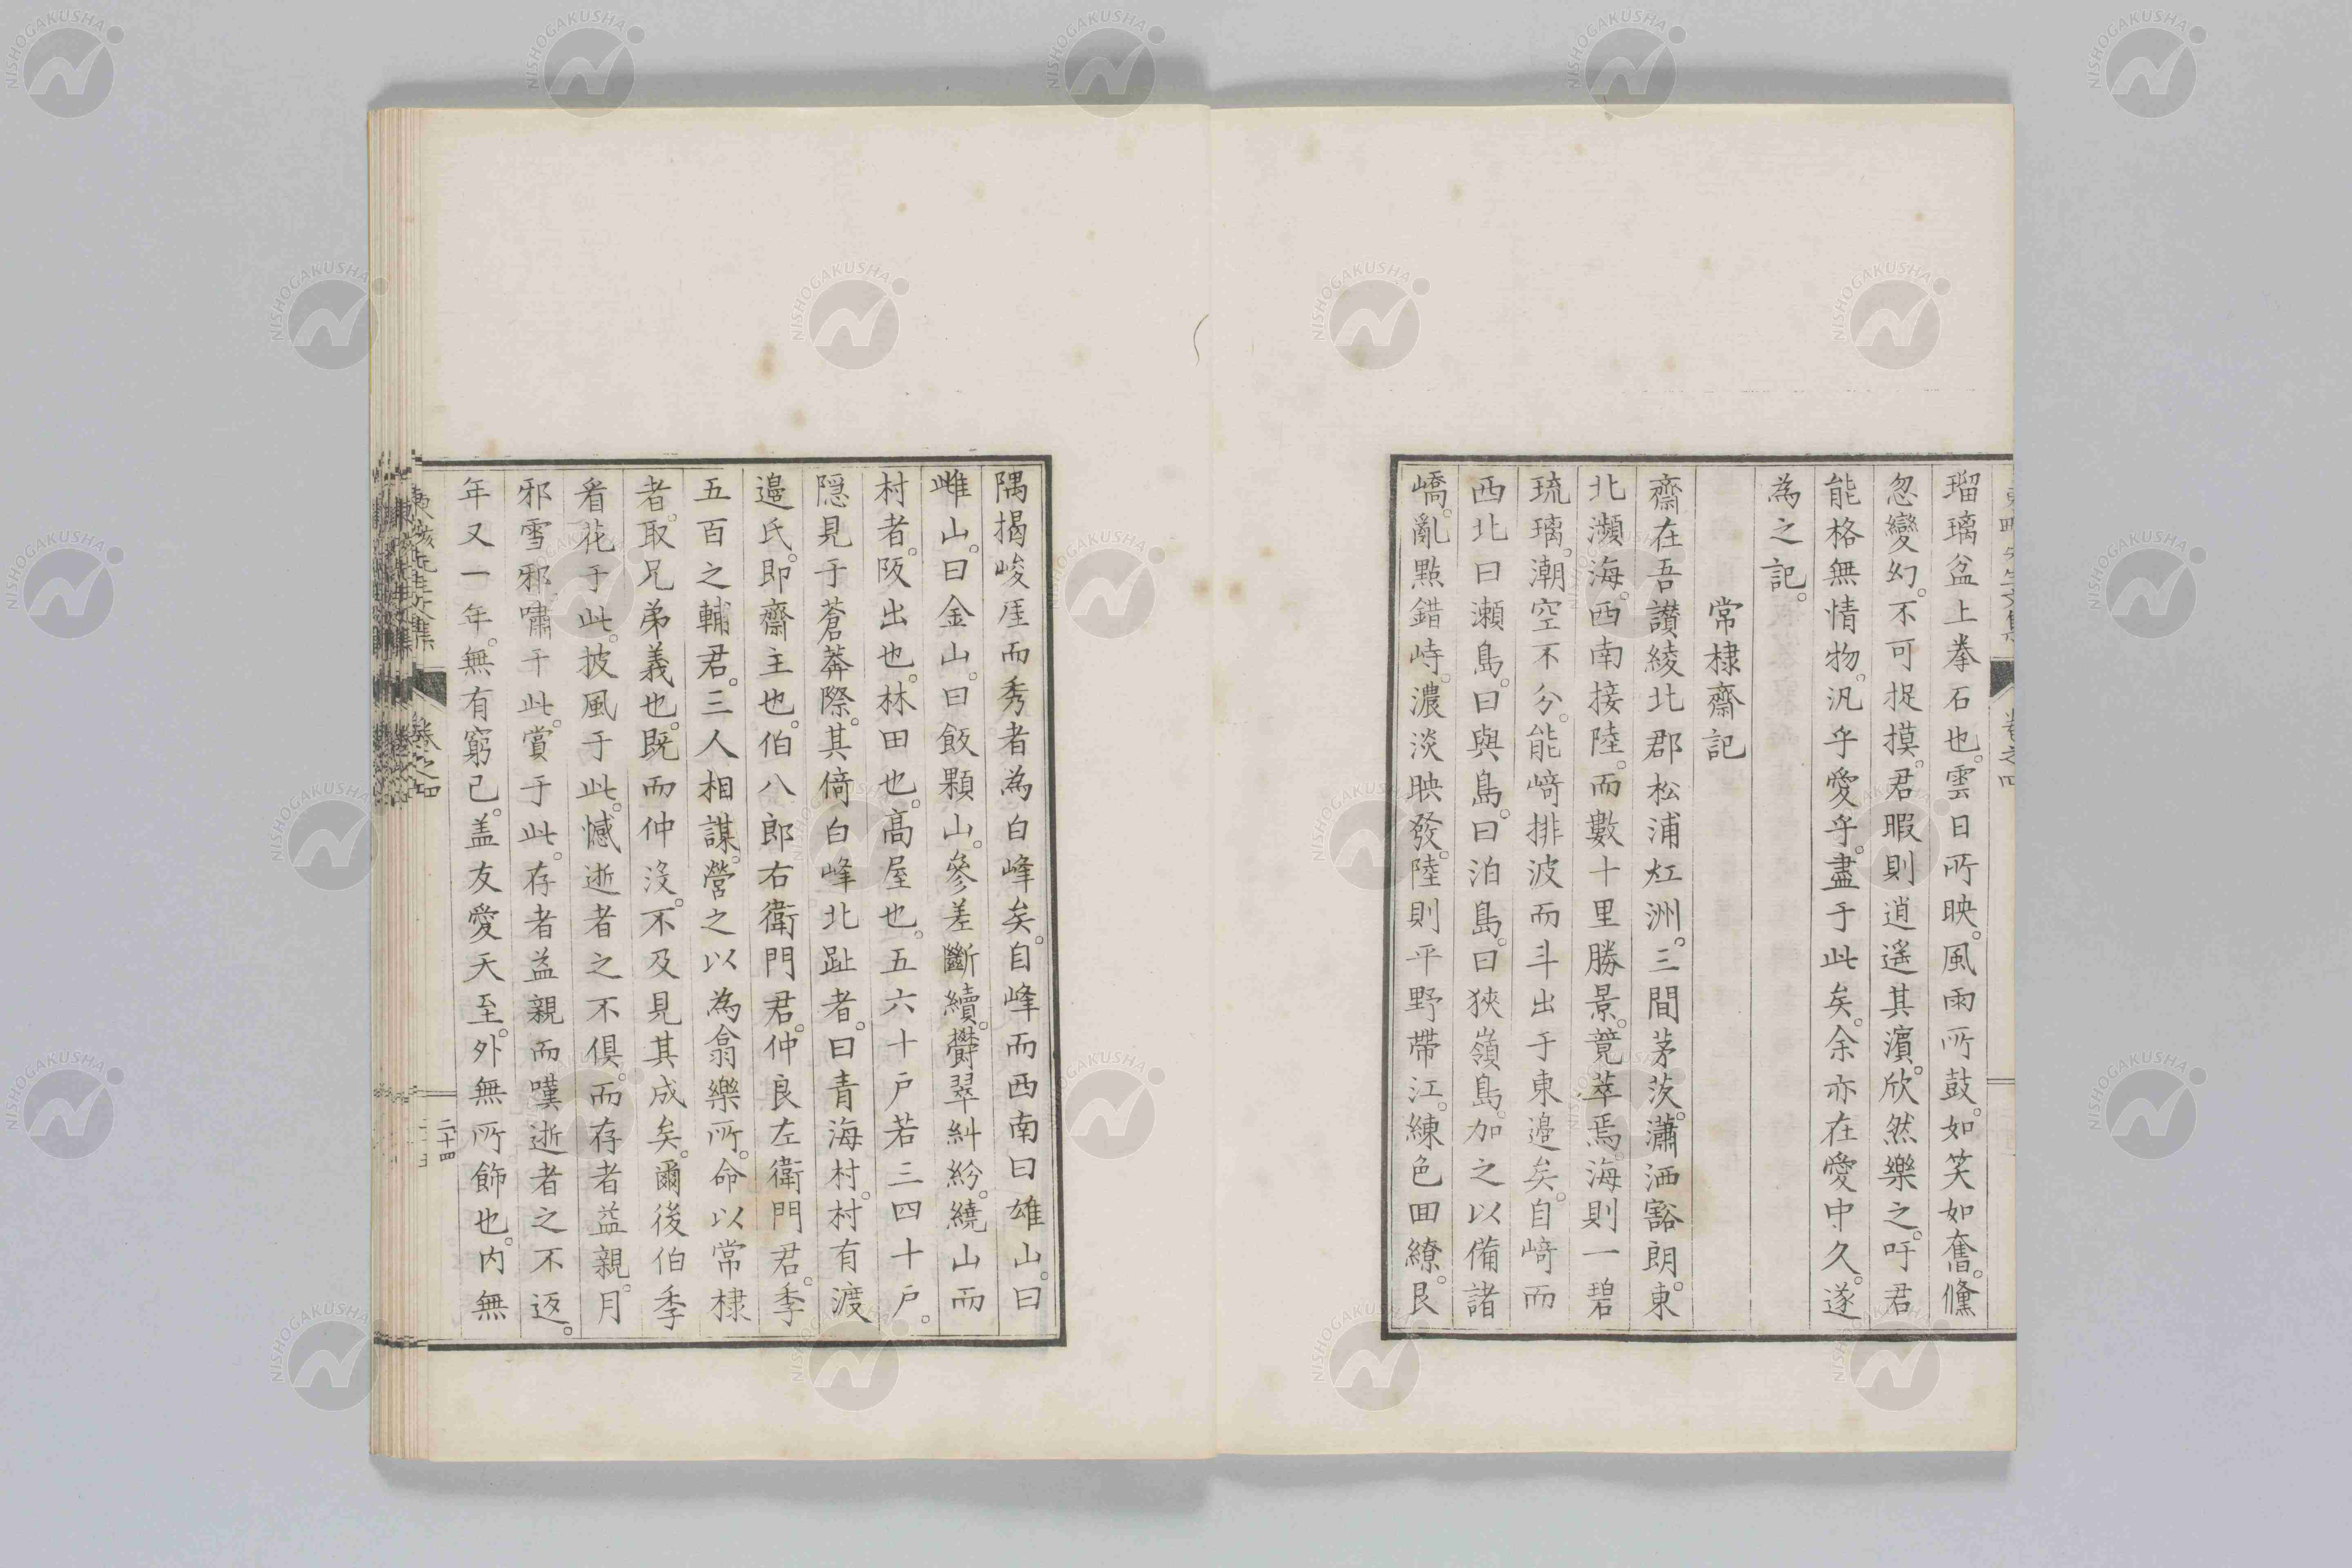 瑠璃盆上拳石也。雲日所映。風雨所鼓。如笑如奮。儵
忽變幻。不可捉摸。君暇則逍遙其濵。欣然樂之。吁君
能格無情物。汎乎愛乎。盡于此矣。余亦在愛中久。遂
為之記。
常棣齋記
齋在吾讃綾北郡松浦灴洲。三間茅茨。瀟洒豁朗。東
北瀕海。西南接陸。而數十里勝景。竟萃焉。海則一碧
琉璃。潮空不分。能﨑排波而斗出于東邉矣。自﨑而
西北曰瀬島。曰與島。曰泊島。曰狹嶺島。加之以備諸
嶠。亂點錯峙。濃淡映發。陸則平野帶江。練色囬繚。艮
隅揭峻厓而秀者為白峰矣。自峰而西南曰雄山。曰
雌山。曰金山。曰飯顆山。參差斷續。欝翠糾紛。繞山而
村者。阪出也。林田也。高屋也。五六十戶若三四十戶。
隱見于蒼莽際。其倚白峰北趾者。曰青海村。村有渡
邉氏。即齋主也。伯八郎右衛門君。仲良左衛門君。季
五百之輔君。三人相謀。營之以為翕樂所。命以常棣
者。取兄弟義也。既而仲沒。不及見其成矣。爾後伯季
看花于此。披風于此。憾逝者之不俱。而存者益親。月
邪雪邪。嘯于此。賞于此。存者益親而嘆逝者之不返。
年又一年。無有窮已。盖友愛天至。外無所飾也。内無
東畡先生文集
卷之四
二十四
NISHOGAKUSHA